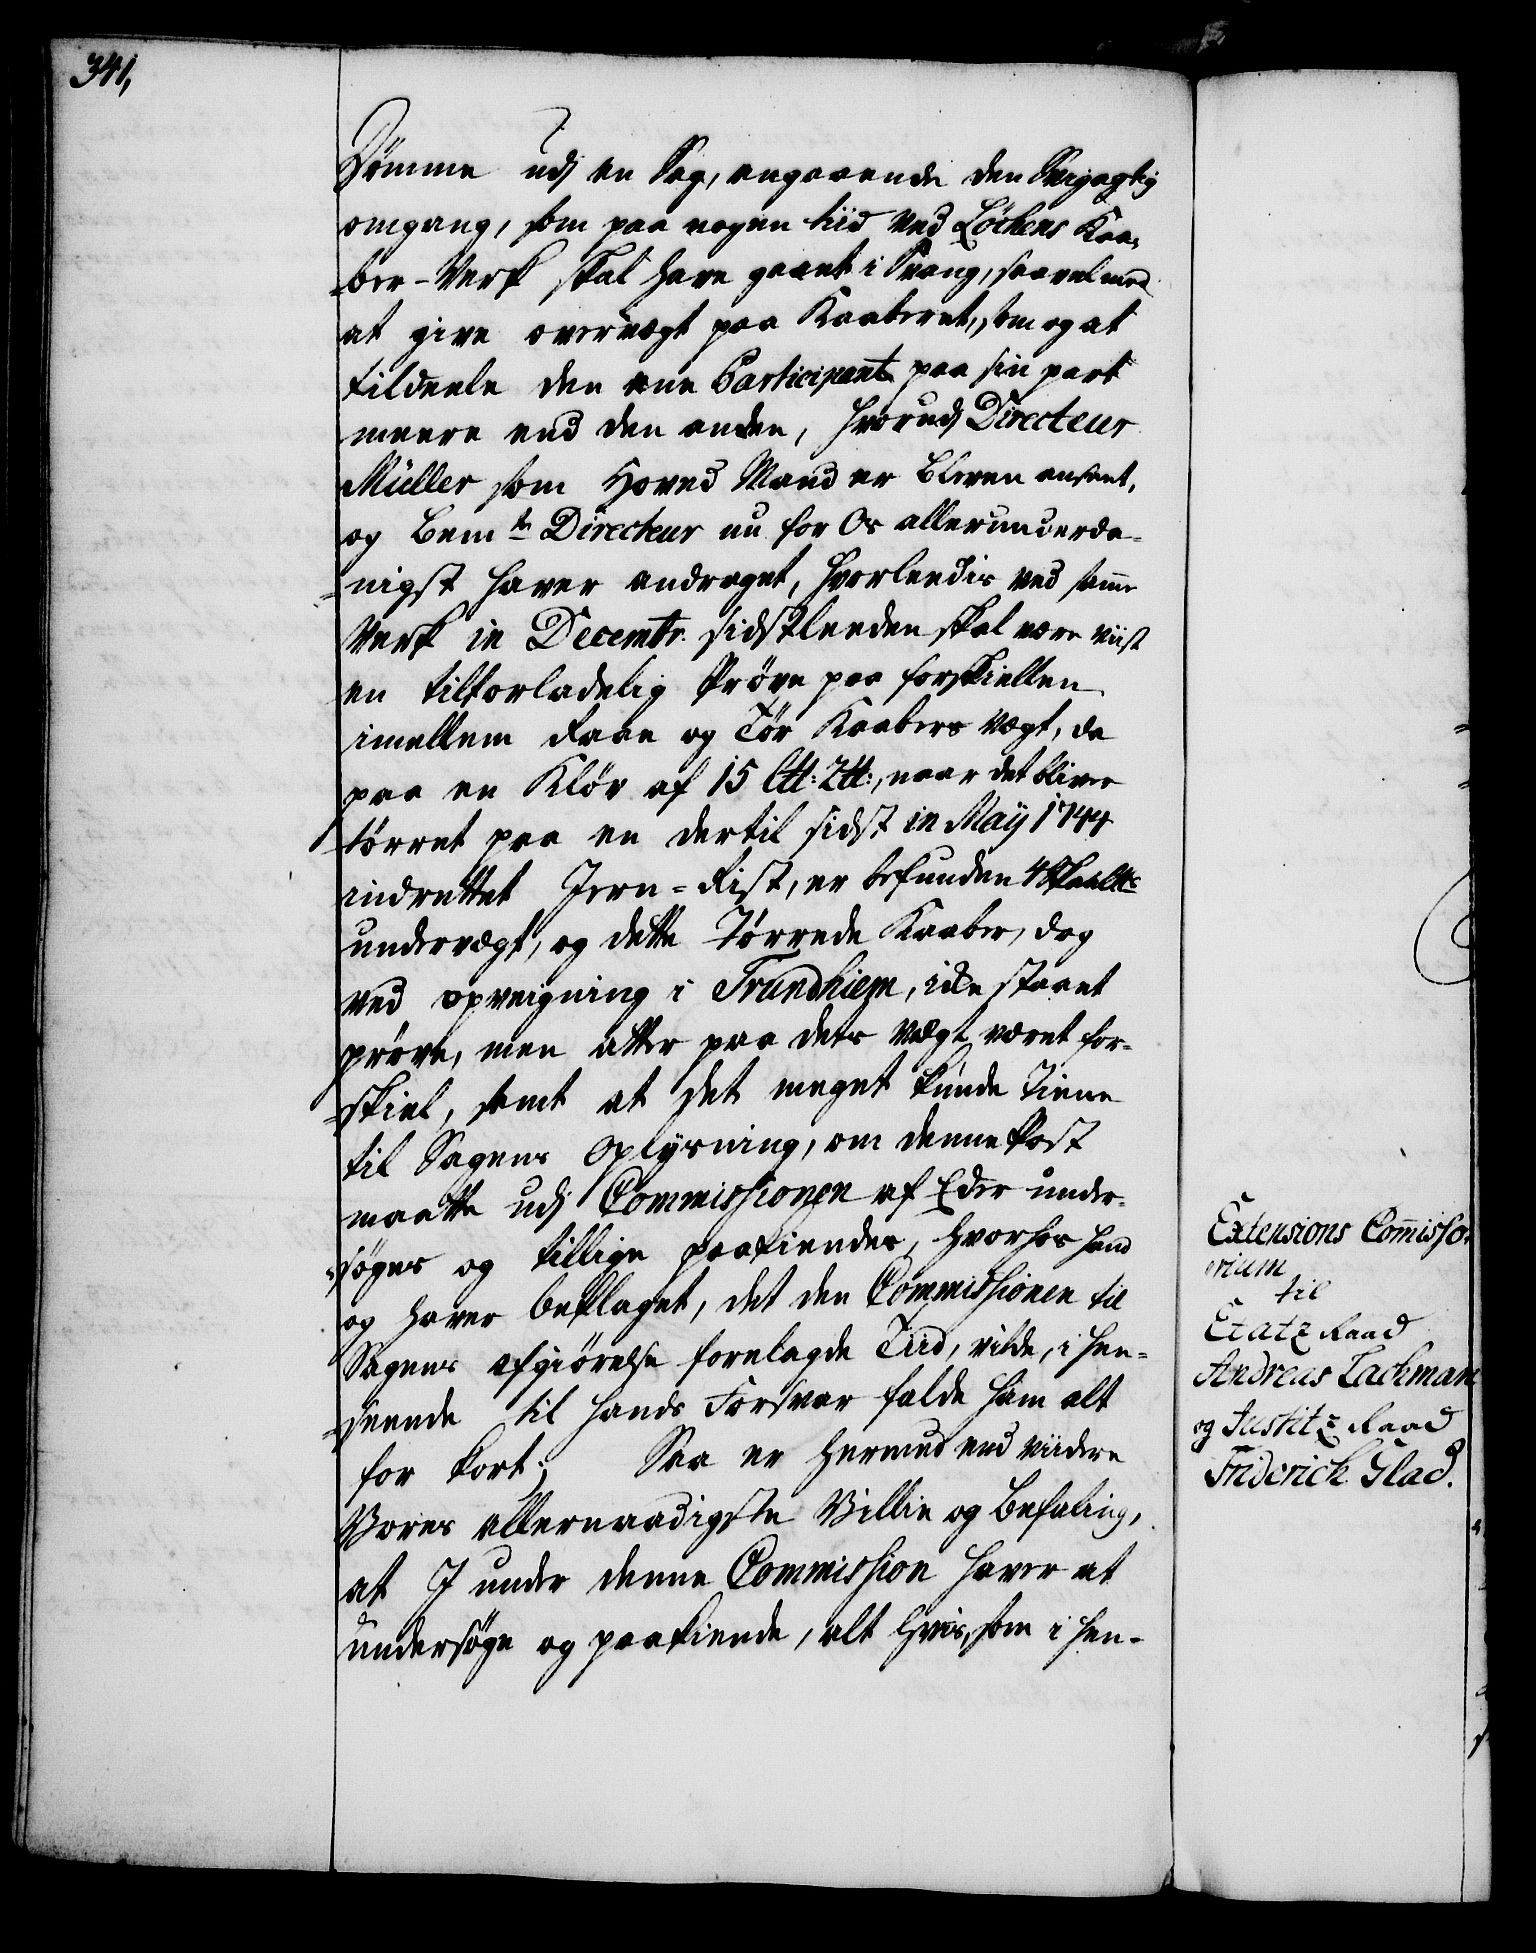 341,
Dömme udj en Sag, angaaende den Svigagtig
omgang, som paa nogen tiid ved Löckens Kaa-
-ber-Verk skal have gaaet i Svang, saavel med
at give overvægt paa Kaaberet, som og at
tildeele den eene Participant paa sin part
meere end den anden, hvorudj Directeur
Müller som Hoved Mand er bleven anseet,
og bem.te Directeur nu for Os allerunderda-
-nigst haver andraget, hvorleedis ved samme
Verk in Decembr. sidstleeden skal være viist
en tilforladelig Pröve paa forskiellen
imellem Raae og Tör Kaabers vægt, da
paa en Klöv af 15 Ltt: Ztt:, naar det bliver
törret paa en dertil sidst in Maÿ 1744
indrettet Jern-Rist, er befunden 4
undervægt, og dette Törrede Kaaber, dog
ved opveigning i Trundhiem, icke staaet
pröve, men atter paa dets vægt været for-
-skiel, samt at det meget kunde tiene
til Sagens Oplÿsning, om denne Post
maatte udj Commissionen af Eder under-
-söges og tillige paakiendes, hvorhos hand
og haver beklaget, det den Commissionen til
Sagens afgiörelse forelagde Tiid, vilde, i hen-
-seende til hands Forsvar falde ham alt
for kort; Saa er hermed end viidere
Vores allernaadigste Villie og befaling,
at J under denne Commission haver at
undersöge og paakiende, alt hvis, som i hen-
Extensions Commisso-
rium
til
Etatz Raad
Andreas Lachman
og Justitz Raad
Friderich Glad.